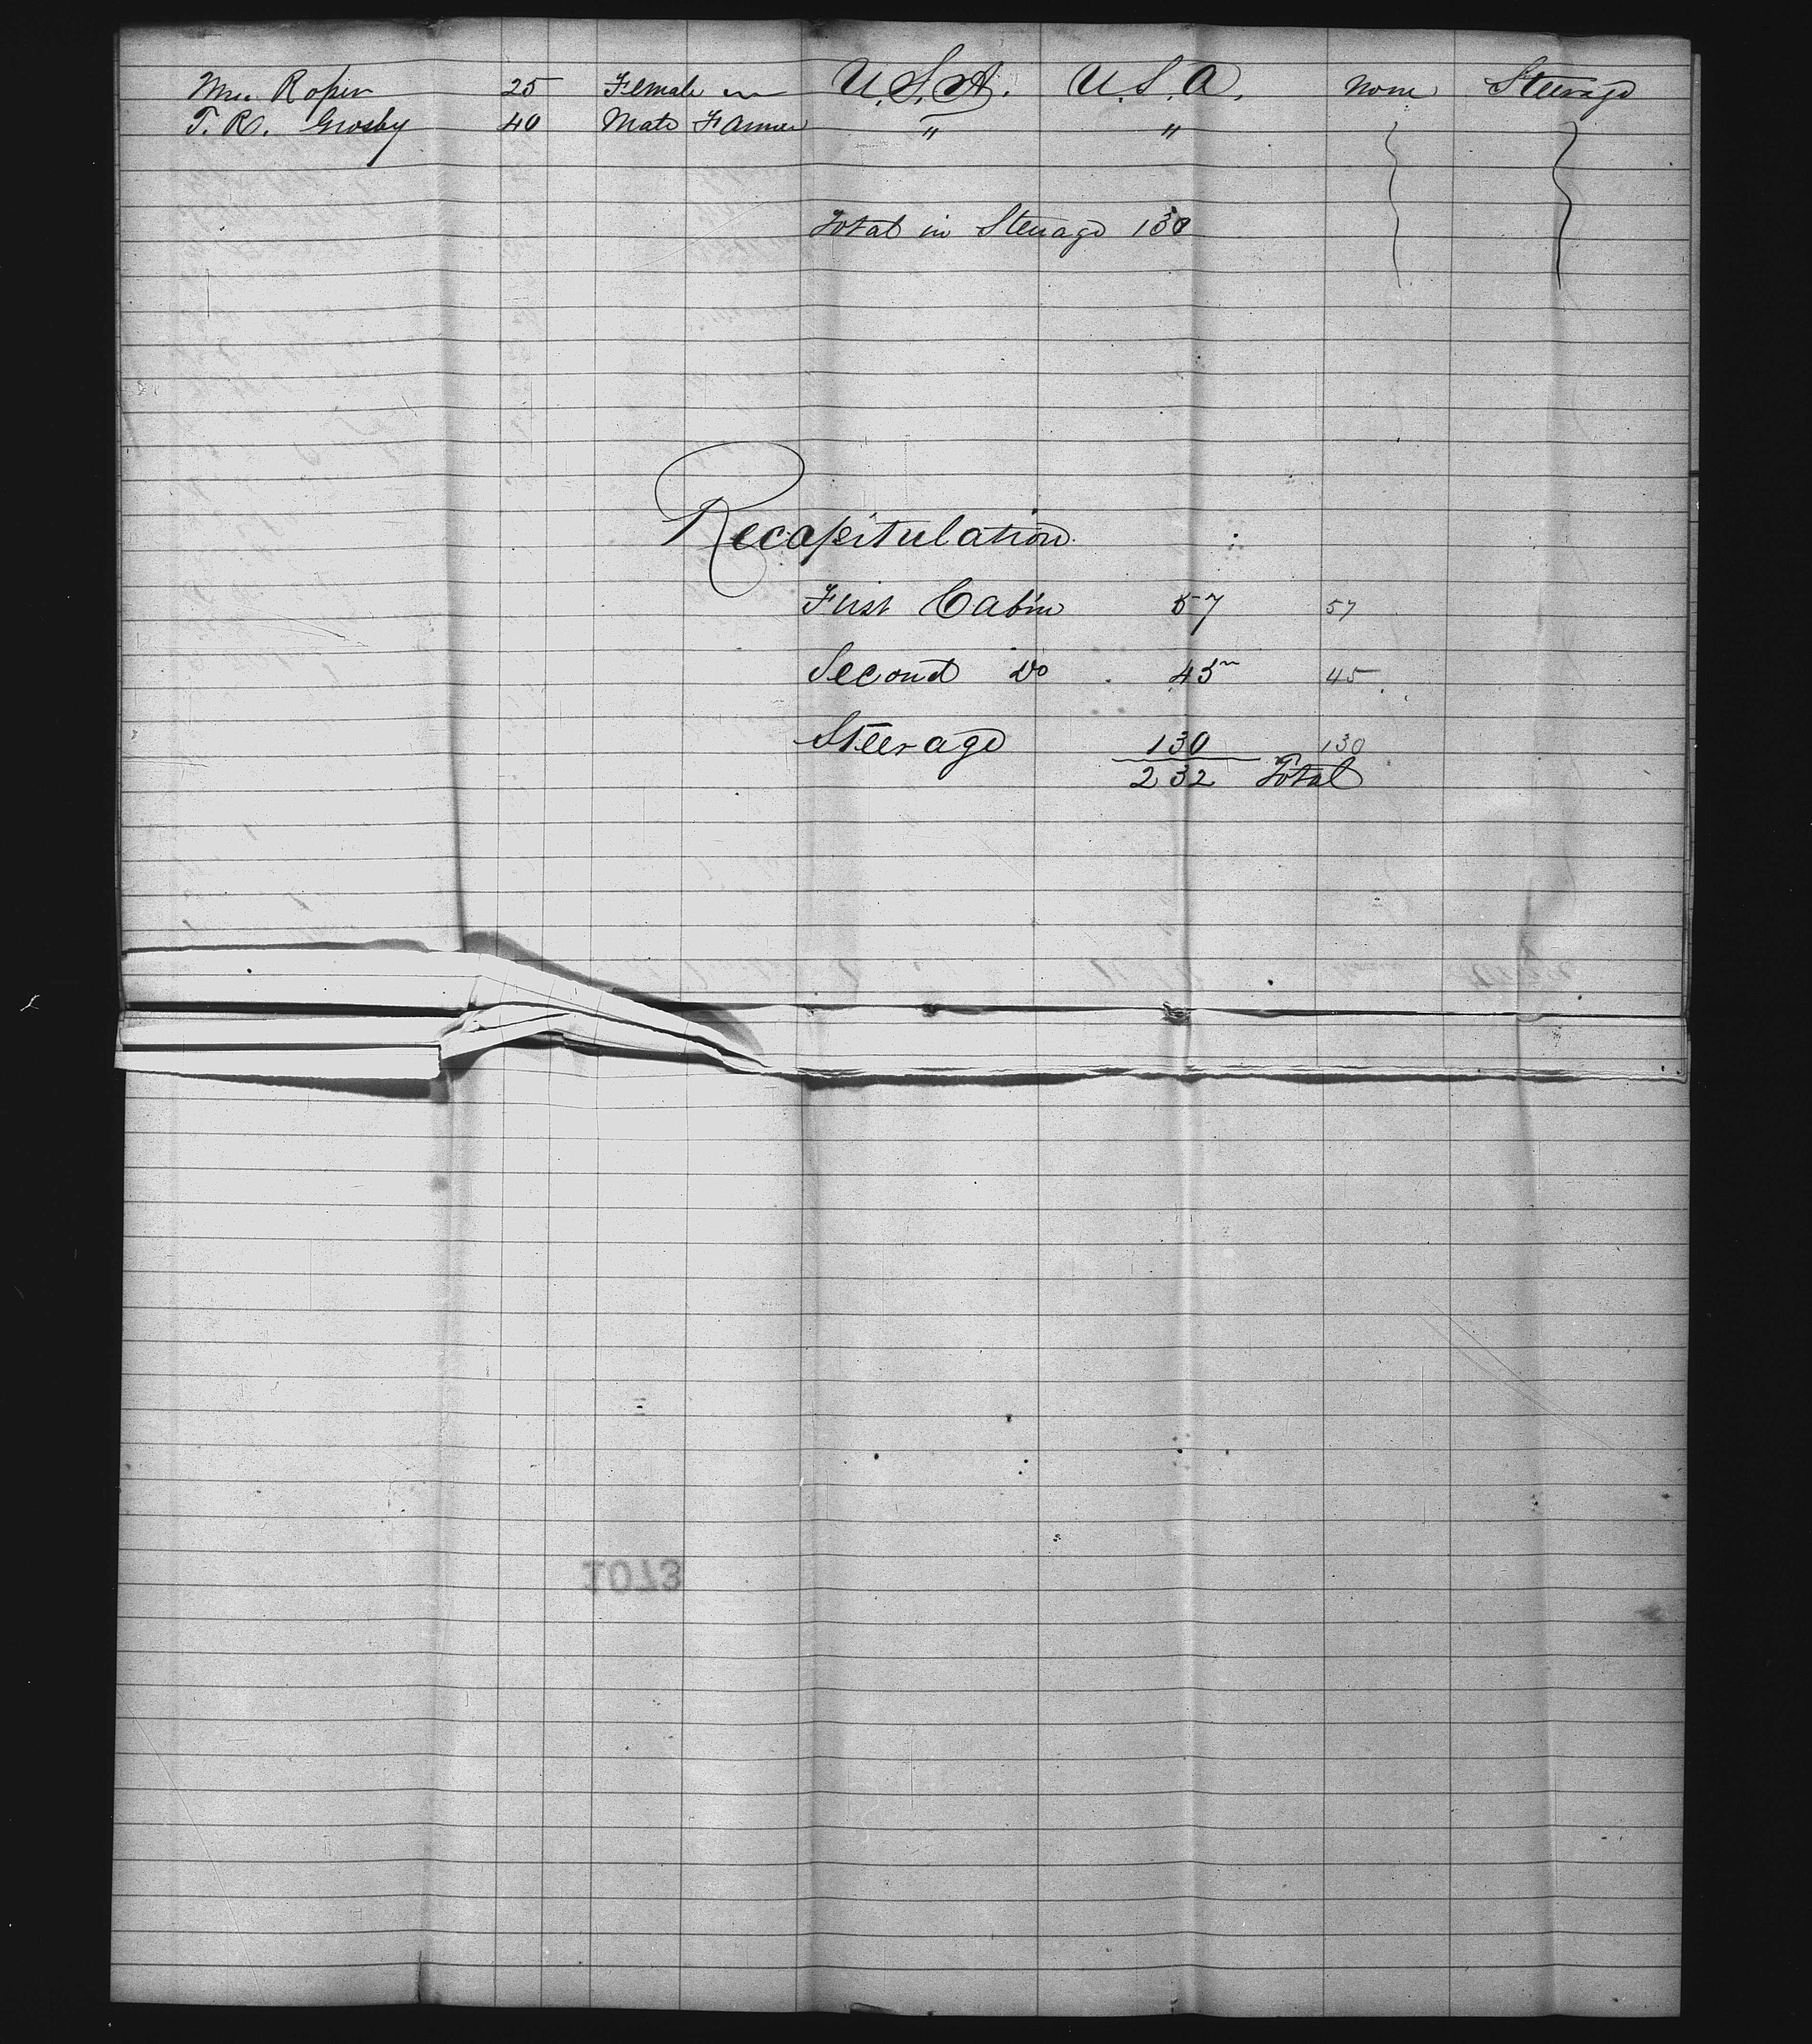 Mrs. Roper 25 Female " U.S.A. U.S.A. None Steerage
T. R. Grosby 40 Male Farmer " "
Total in Steerage 130
Recapitulation.
First Cabin 57 57
Second Do 45 45
Steerage 130 130
232 Total
1073